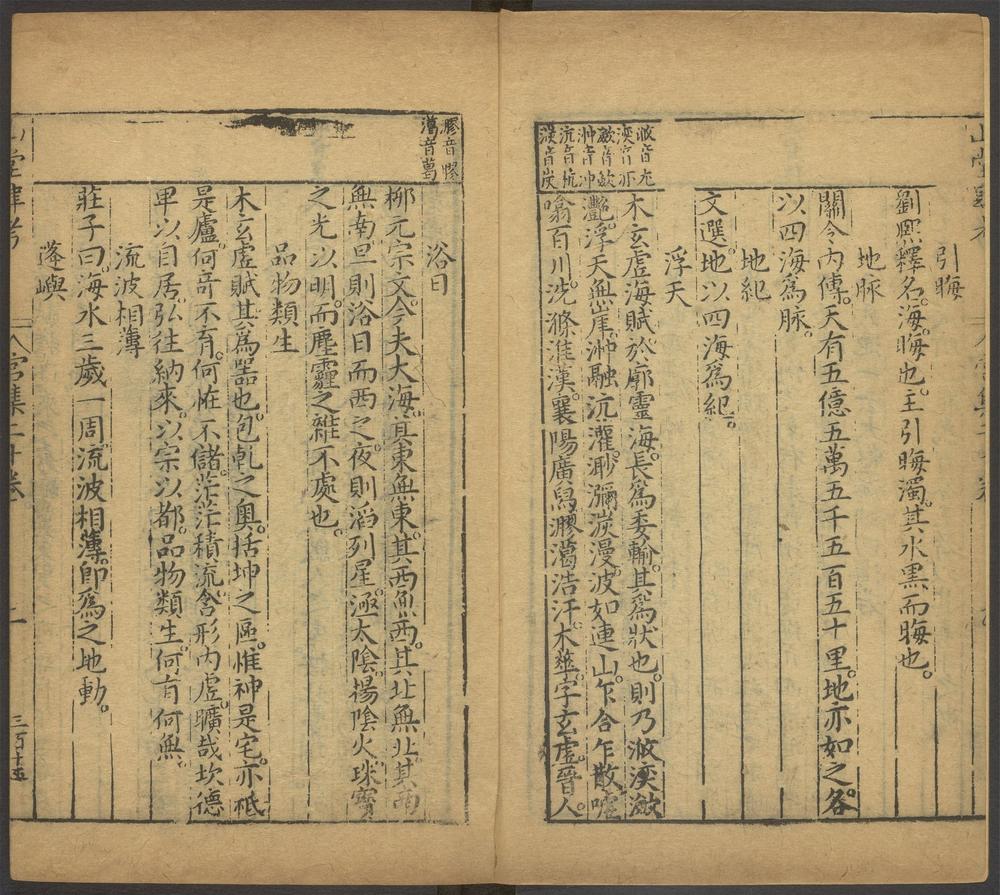 引晦
劉熙釋名。海。晦也。主引晦濁。其水黒而晦也。
地脉
關令内傳。天有五億五萬五千五百五十里。地亦如之。各
以四海為脉。
地紀
文選。地以四海為紀。
浮天
木玄虛海賦。於廓靈海。長為委輸。其為狀也。則乃浟湙瀲
灔。浮天無崖。沖瀜沆瀁。渺瀰淡漫。波如連山。乍合乍散。噓
噏百川。洗滌淮漢。襄陽廣舄。㶀灟浩汗。木華。字玄虛。晉人。
浟音尤
湙音亦
瀲音歛
沖音冲
沆音杭
淡音炭
㶀音膠
浴日
柳元宗文。今夫大海。其東無東。其西無西。其北無北。其南
無南。旦則浴日而西之。夜則滔列星。極太陰。揚陰火。珠寶
之光以明。而塵霾之雜不處也。
品物類生
木玄虛賦。其為噐也。包乹之奥。括坤之區。惟神是宅。亦祗
是廬。何竒不有。何恠不儲。茫茫積流。含形内虛。曠哉坎德
卑以自居。弘往納來。以宗以都。品物類生。何有何無。
流波相薄
莊子曰。海水三歲一周。流波相薄。即為之地動。
蓬嶼
宫集二十卷
三百十五